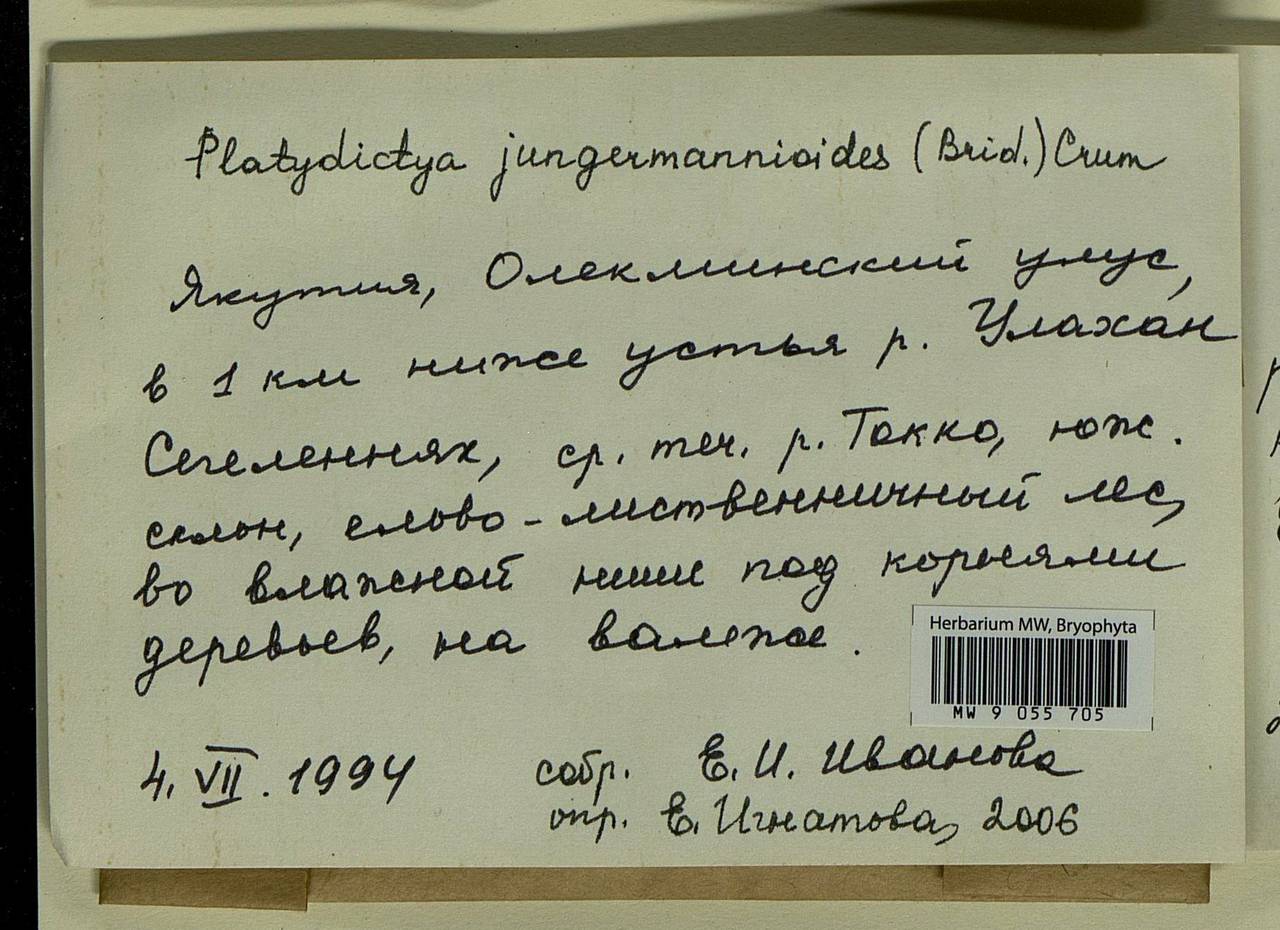 Platydictya jungermannioides (Brid.) Crum
Якутия, Олекминский улус,
в 1 км ниже устья р. Улахан
Сегеленнях, ср. теч. р. Токко, юж.
склон, елово-лиственничный лес,
во влажной нише под корнями
деревьев, на валеже.
Herbarium MW, Bryophyta
MW 9 055 705
4. VII. 1994 собр. Е. И. Иванова
опр. Е. Игнатова, 2006